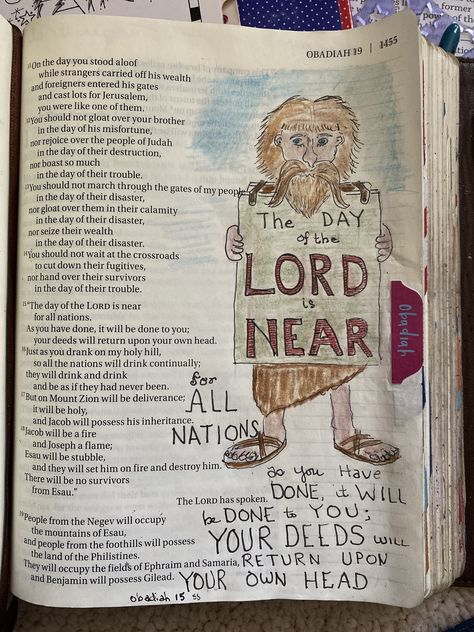 former
power of
OBADIAH 19 | 1455
11 On the day you stood aloof
while strangers carried off his wealth
and foreigners entered his gates
and cast lots for Jerusalem,
you were like one of them.
12 You should not gloat over your brother
in the day of his misfortune,
nor rejoice over the people of Judah
in the day of their destruction,
nor boast so much
in the day of their trouble.
13 You should not march through the gates of my people
in the day of their disaster,
nor gloat over them in their calamity
in the day of their disaster,
nor seize their wealth
in the day of their disaster.
14 You should not wait at the crossroads
to cut down their fugitives,
nor hand over their survivors
in the day of their trouble.
15 "The day of the LORD is near
for all nations.
As you have done, it will be done to you;
your deeds will return upon your own head.
16 Just as you drank on my holy hill,
so all the nations will drink continually;
they will drink and drink
and be as if they had never been.
17 But on Mount Zion will be deliverance;
it will be holy,
and Jacob will possess his inheritance.
18 Jacob will be a fire
and Joseph a flame;
Esau will be stubble,
and they will set him on fire and destroy him.
There will be no survivors
from Esau."
The LORD has spoken.
19 People from the Negev will occupy
the mountains of Esau,
and people from the foothills will possess
the land of the Philistines.
They will occupy the fields of Ephraim and Samaria,
and Benjamin will possess Gilead.
The DAY
of the
LORD
is
NEAR
for
ALL
NATIONS
as you HAVE
DONE, it WILL
be DONE to YOU;
YOUR DEEDS will
RETURN UPON
YOUR OWN HEAD
Obadiah 15 ss
Obadiah